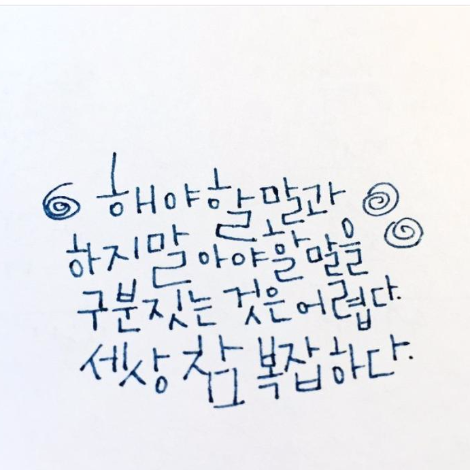 해야할 말과
하지말아야할 말을
구분짓는 것은 어렵다.
세상 참 복잡하다.